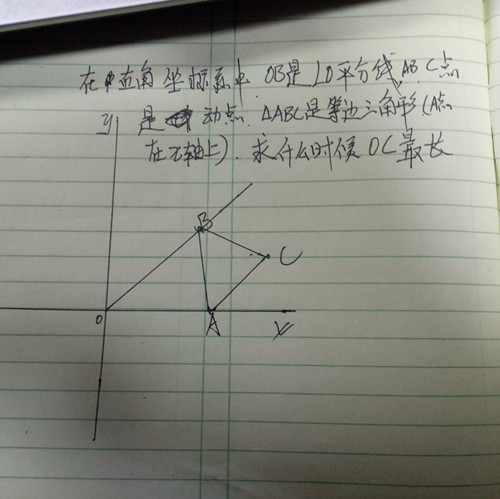 在直角坐标系中 OB是∠O平分线,AB.C点
是动点.△ABC是等边三角形(A点
在x轴上).求什么时候OC最长
y
B
C
O
A
x